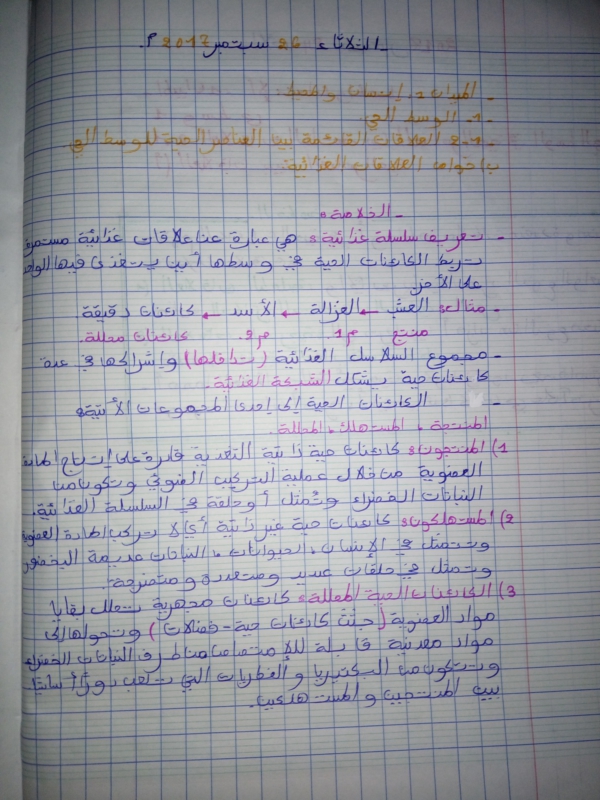 - الثلاثاء 26 سبتمبر 2017 م.
- الميدان 1: إنسان والمحيط.
- 1. الوسط الحي
- 1.2 العلاقات القائمة بين العناصر الحية للوسط الحي
بإخواص العلاقات الغذائية.
- الخلاصة:
- تعريف سلسلة غذائية: هي عبارة عن علاقات غذائية مستمرة
تربط الكائنات الحية في وسطها أين يتغذى فيها الواحد
على الأخر
- مثال: العشب ← الغزالة ← الأسد ← كائنات دقيقة
منتج م1 م2 كائنات محللة.
- مجموع السلاسل الغذائية (تداخلها) وإشراكها في عدة
كائنات حية يشكل الشبكة الغذائية.
- الكائنات الحية إلى إحدى المجموعات الأتية:
المنتجة، المستهلك، المحللة.
1) المنتجون: كائنات حية ذاتية التغذية قادرة على إنتاج المادة
العضوية من خلال عملية التركيب الضوئي وتكون من
النباتات الخضراء وتمثل أو حلقة في السلسلة الغذائية.
2) المستهلكون: كائنات حية غير ذاتية أي لا تركب المادة العضوية
وتتمثل في الإنسان، الحيوانات، النباتات عديمة اليخضور
وتمثل في حلقات عديد ومتعددة و
3) الكائنات الحية المحللة: كائنات مجهرية تحلل بقايا
مواد العضوية (جثث كائنات حية - فضلات) وتحولها إلى
مواد معدنية قابلة للامتصاص من طرف النباتات الخضراء
وتتكون من البكتيريا والفطريات التي تلعب دورًا أساسيًا
بين المنتجين والمستهلكين.